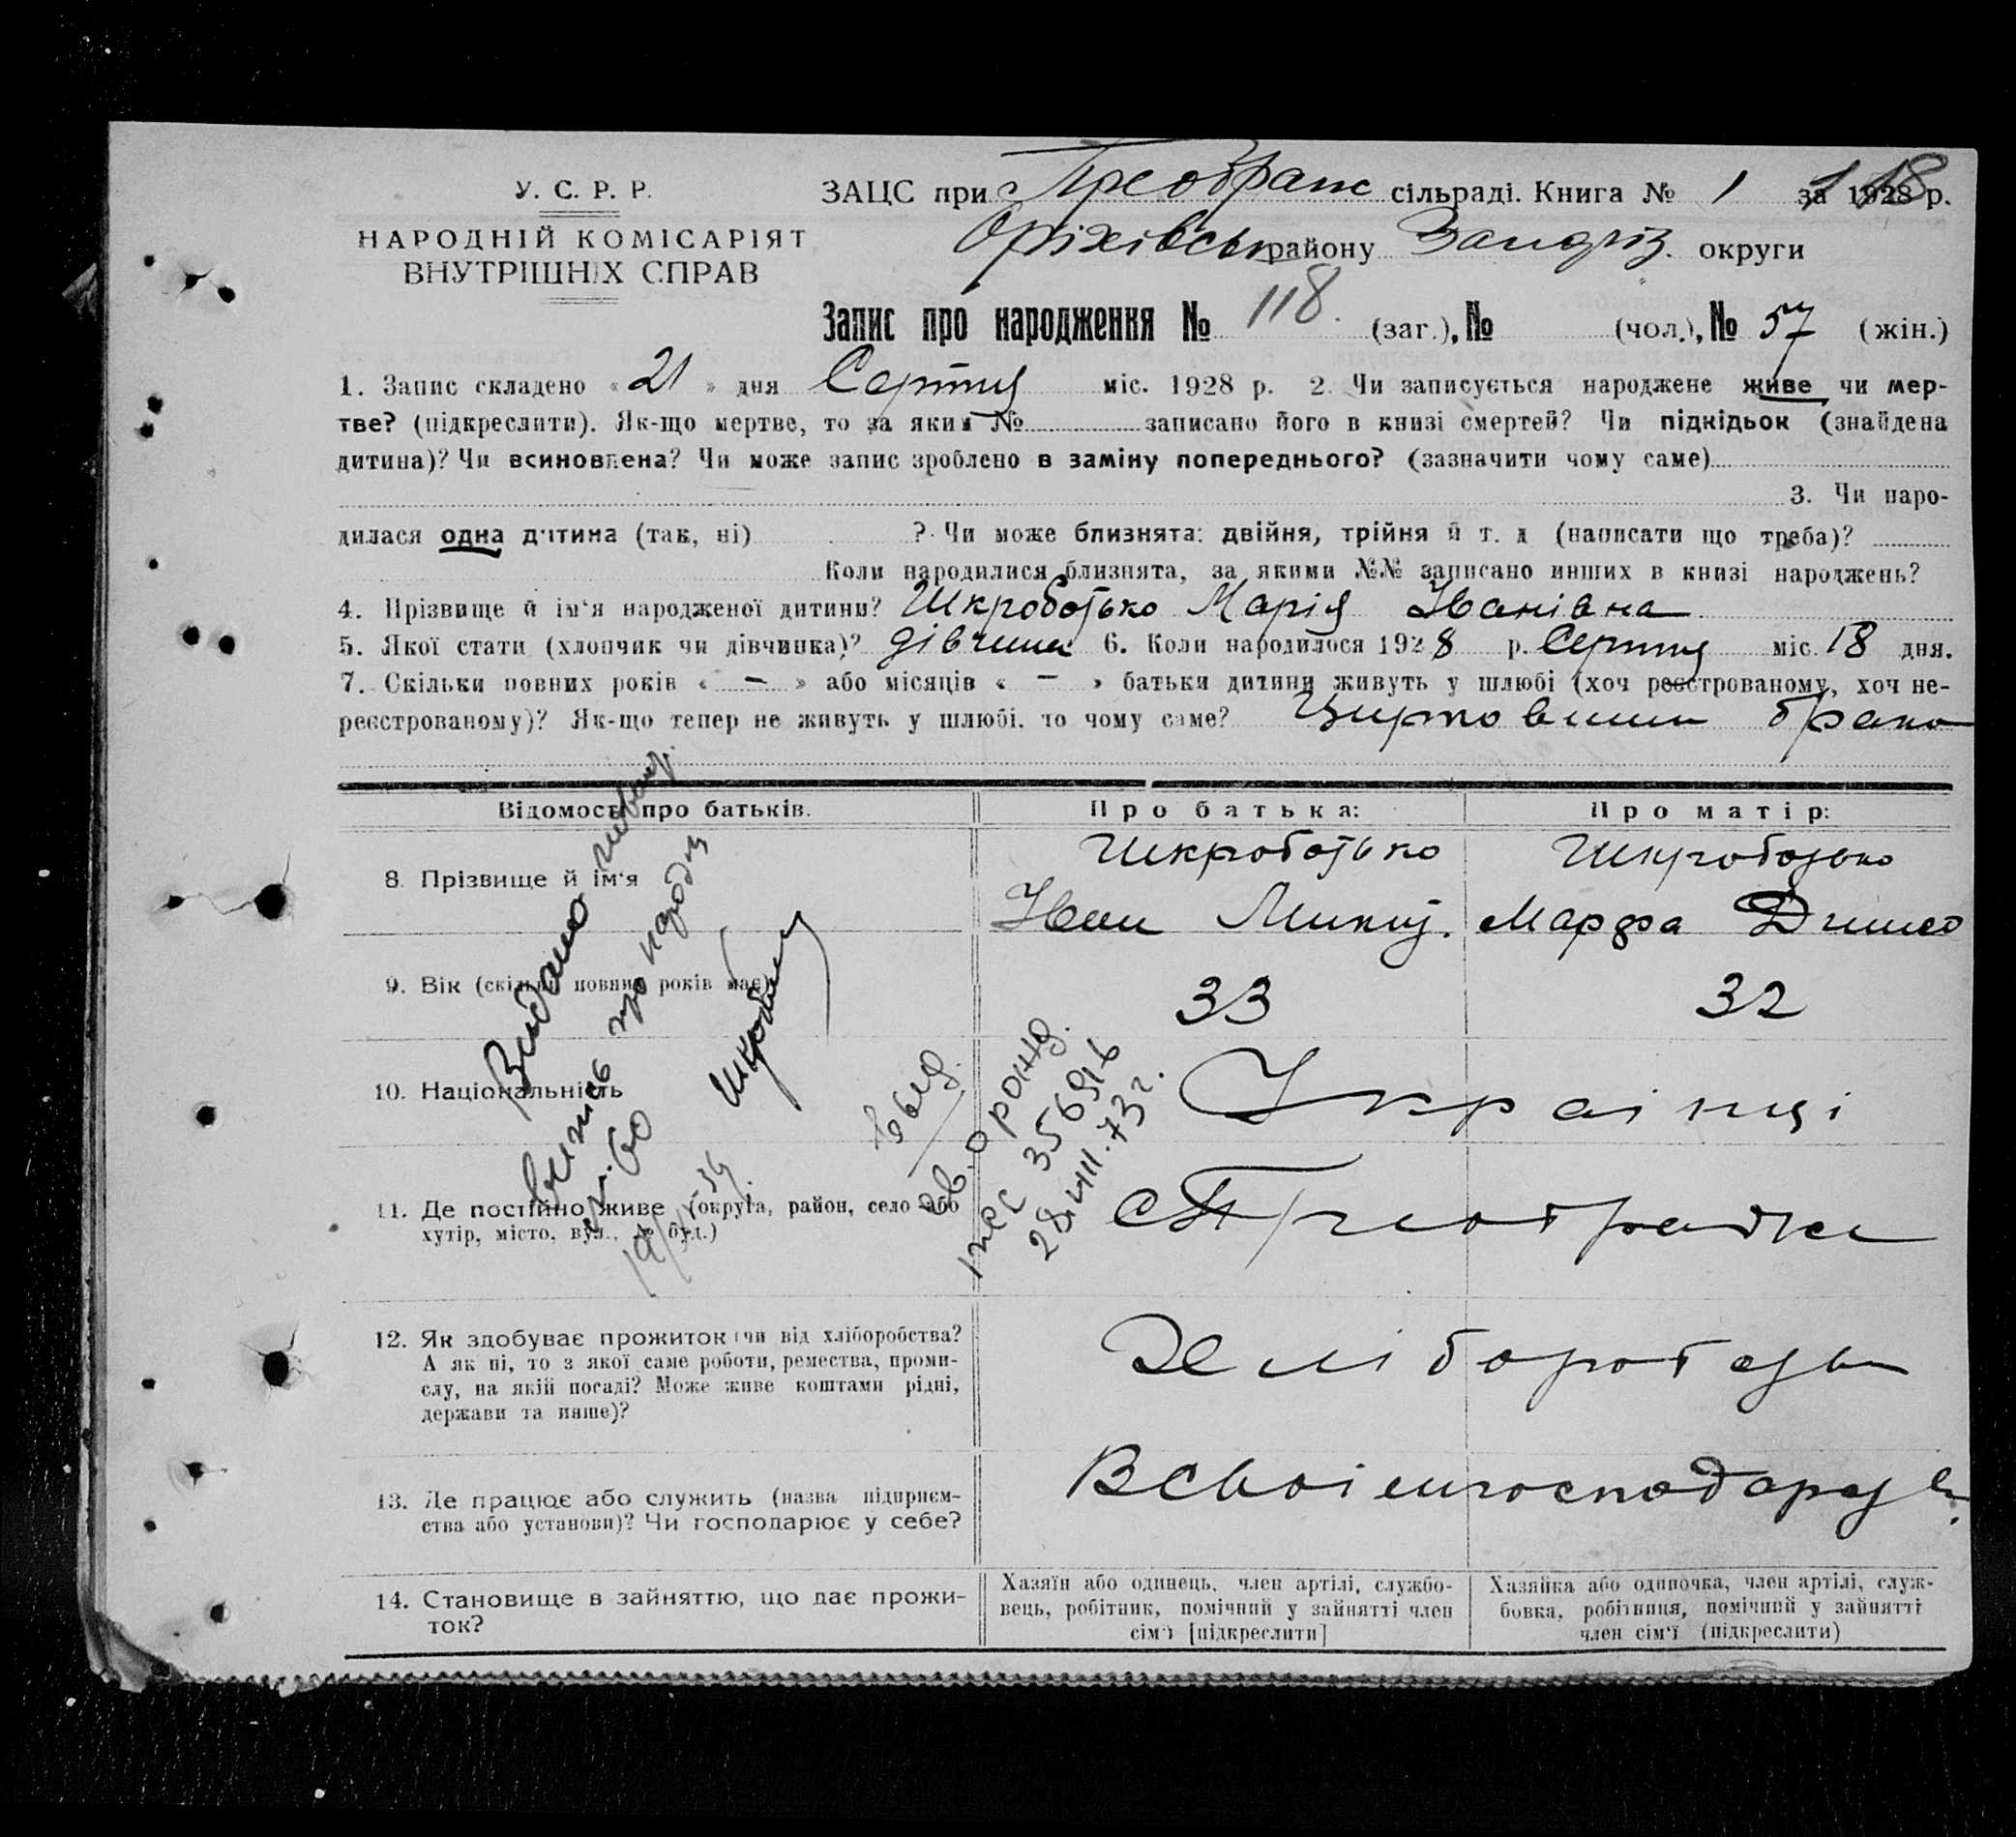 У. С. Р. Р.
НАРОДНІЙ КОМІСАРІЯТ
ВНУТРІШНІХ СПРАВ
ЗАЦС при Преображ сільраді. Книга № 1 за 1928 р.
118
Оріхівськ району Запоріз. округи
Запис про народження № 118. (заг.), № (чол.), № 57 (жін.)
1. Запис складено « 21 » дня Серпня міс. 1928 р. 2. Чи записується народжене живе чи мер-
тве? (підкреслити). Як-що мертве, то за яким № записано його в книзі смертей? Чи підкідьок (знайдена
дитина)? Чи всиновлена? Чи може запис зроблено в заміну попереднього? (зазначити чому саме)
3. Чи наро-
дилася одна дитина (так, ні) ? Чи може близнята: двійня, трійня й т. д (написати що треба)?
Коли народилися близнята, за якими №№ записано инших в книзі народжень?
4. Прізвище й ім'я народженої дитини? Шкроботько Марія Іванівна
5. Якої стати (хлопчик чи дівчинка)? дівчина 6. Коли народилося 1928 р. Серпня міс. 18 дня.
7. Скільки повних років « – » або місяців « – » батьки дитини живуть у шлюбі (хоч реєстрованому, хоч не-
реєстрованому)? Як-що тепер не живуть у шлюбі, то чому саме?
Відомості про батьків. Про батька: Про матір:
8. Прізвище й ім'я
Шкроботько Шкроботько
Іван Микит. Марфа
9. Вік (скільки повних років має)
33 32
10. Національність
Українці
11. Де постійно живе (округа, район, село або
хутір, місто, вул., № буд.)
с Преображен
12. Як здобуває прожиток (чи від хліборобства?
А як ні, то з якої саме роботи, ремества, проми-
слу, на якій посаді? Може живе коштами рідні,
держави та инше)?
Хлібороб
13. Де працює або служить (назва підприєм-
ства або установи)? Чи господарює у себе?
В своїм господар
14. Становище в зайняттю, що дає прожи-
ток?
Хазяїн або одинець, член артілі, службо-
вець, робітник, помічний у зайнятті член
сім'ї [підкреслити]
Хазяйка або одиночка, член артілі, служ-
бовка, робітниця, помічний у зайнятті
член сім'ї (підкреслити)
Видано
випись про народж
№ 60
выд.
356916
28.VIII.73г.